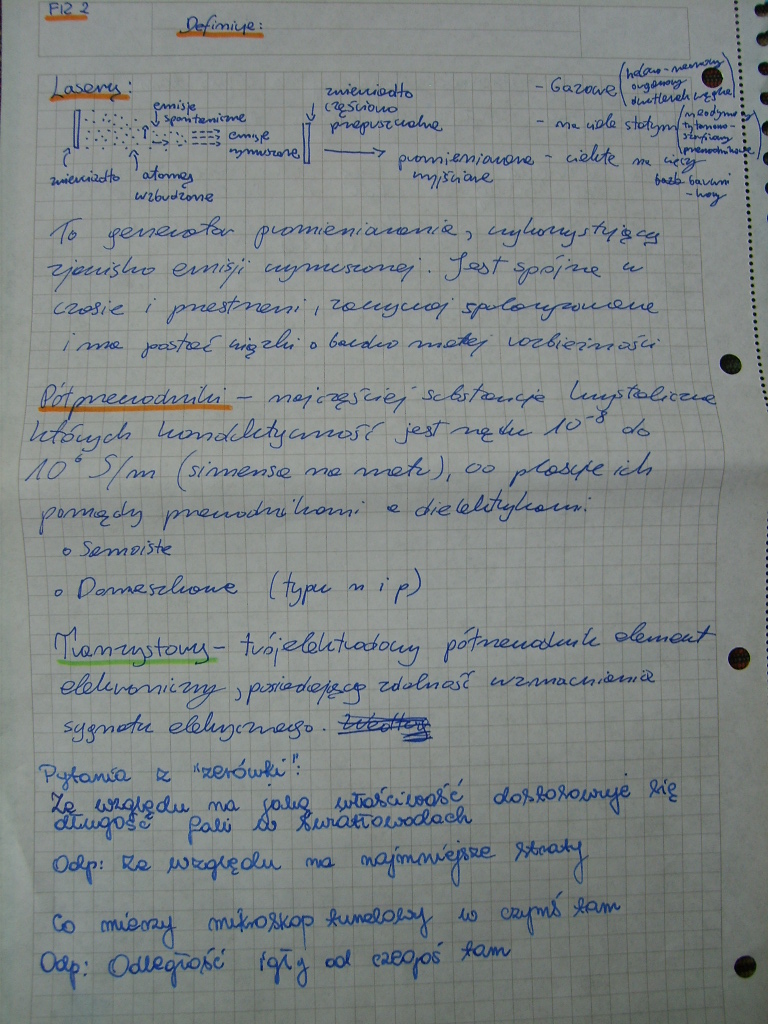 FIZ 2
Definicje:
Lasery:
emisja
spontaniczna
emisja
wymuszona
zwierciadło
atomy
wzbudzone
zwierciadło
częściowo
przepuszczalne
promieniowanie
wyjściowe
- Gazowe (helowo-neonowy
argonowy
dwutlenek węgla)
- na ciele stałym (neodymowy
tytanowo-
szafirowy
półprzewodnikowe)
- ciekłe na cieczy
barwni-
kowy
To generator promieniowania, wykorzystujący
zjawisko emisji wymuszonej. Jest spójne w
czasie i przestrzeni, zazwyczaj spolaryzowane
i ma postać wiązki o bardzo małej rozbieżności
Półprzewodniki - najczęściej substancje krystaliczne
których konduktywność jest rzędu 10⁻⁸ do
10⁶ S/m (simensa na metr), co plasuje ich
pomiędzy przewodnikami a dielektrykami:
o Samoiste
o Domieszkowe (typu n i p)
Tranzystory - trójelektrodowy półprzewodnik element
elektroniczny, posiadający zdolność wzmacniania
sygnału elektrycznego.
Pytania z "zerówki":
Ze względu na jaką właściwość dostosowuje się
długość fali w światłowodach
Odp: Ze względu na najmniejsze straty
Co mierzy mikroskop tunelowy w czymś tam
Odp: Odległość igły od czegoś tam